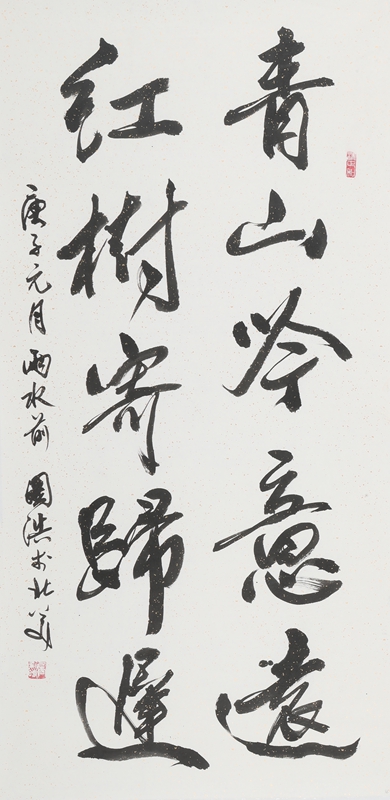 青山吟意遠
紅樹寄歸遲
庚子元月雨水前國浩於北美